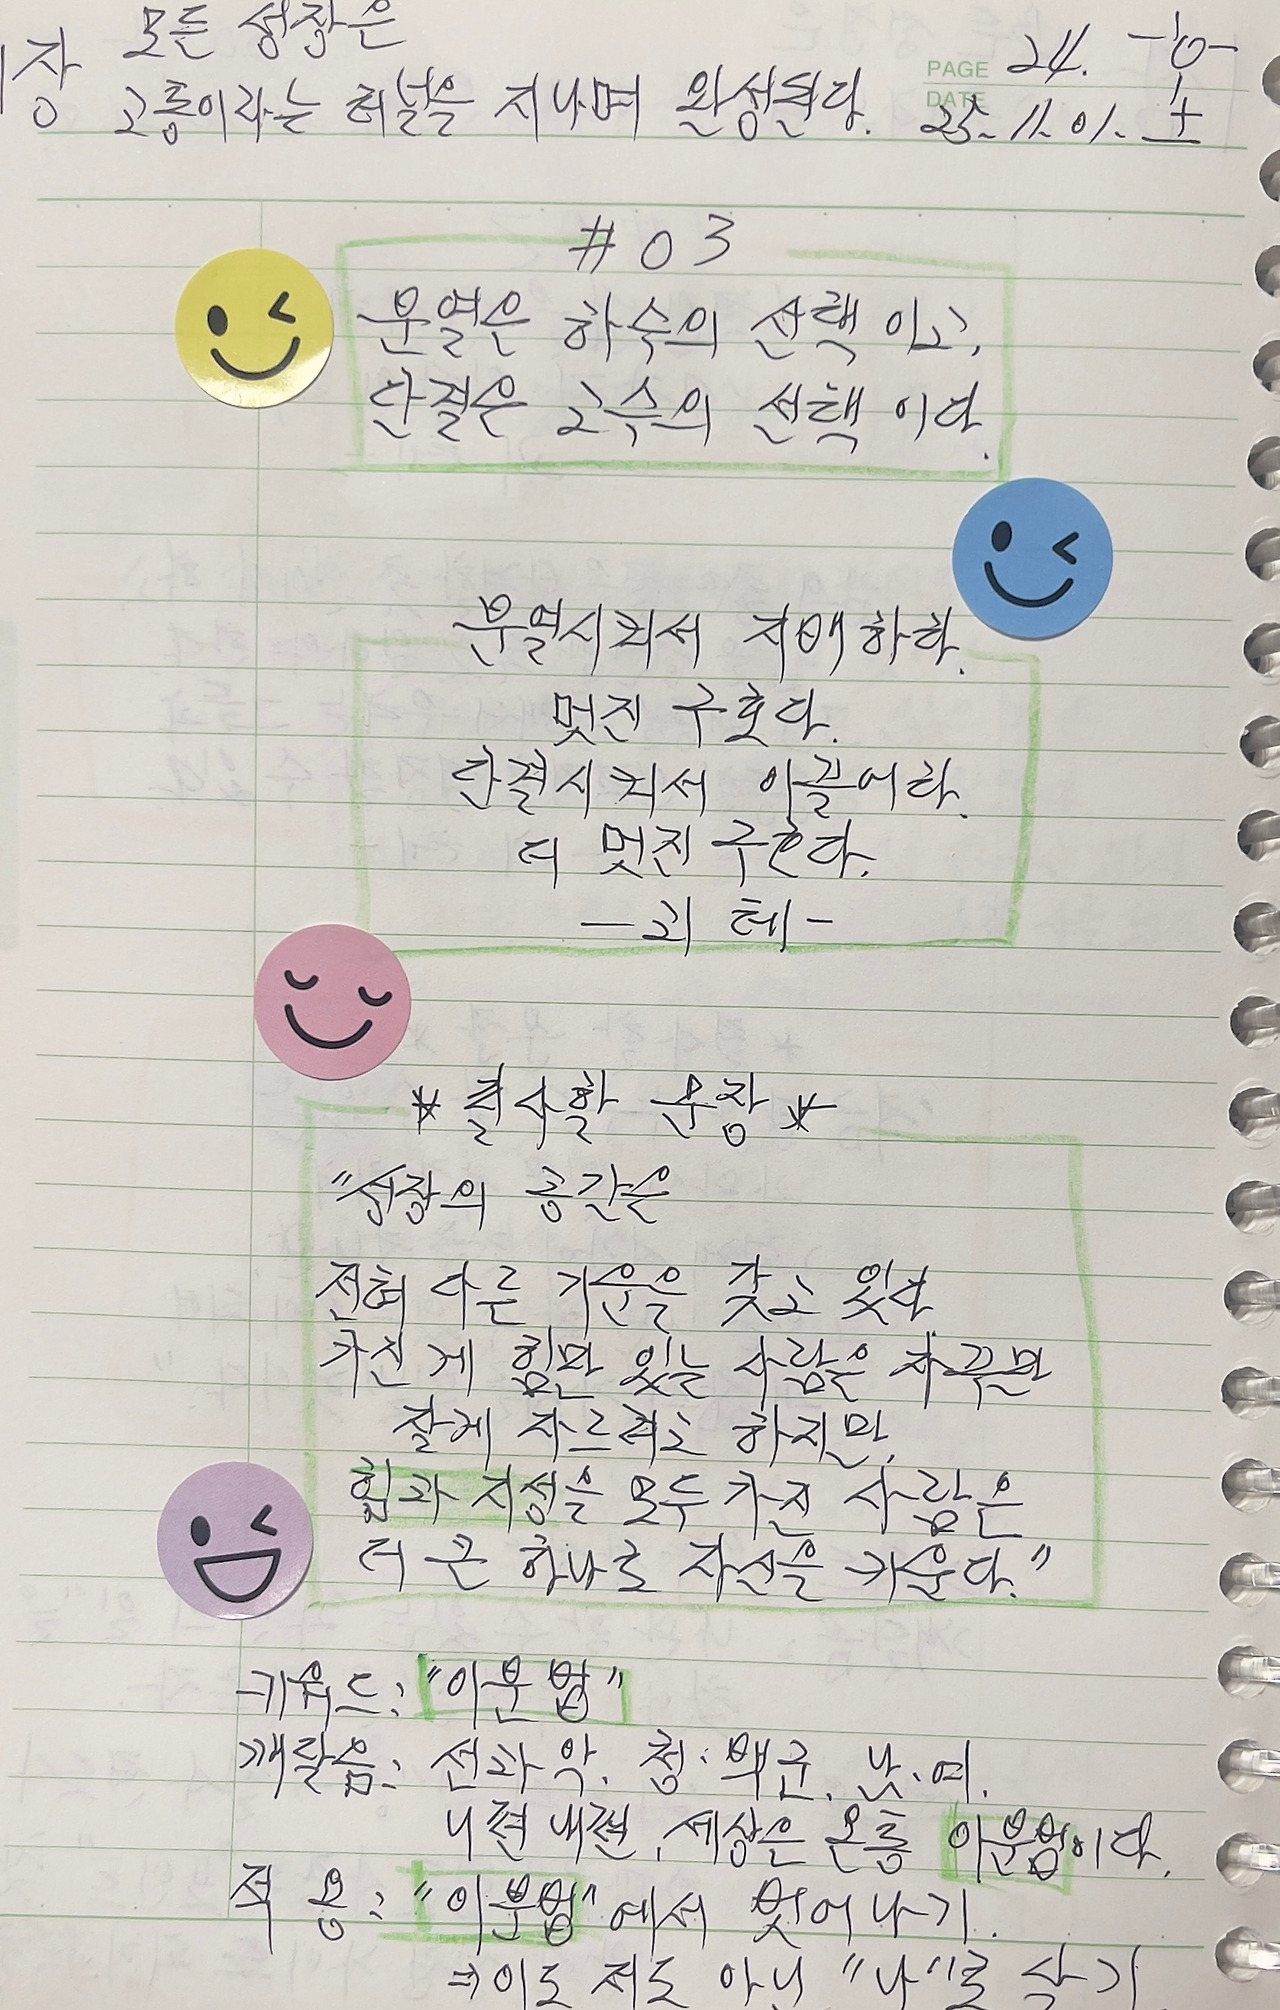 장 모든 성장은
고통이라는 터널을 지나며 완성된다.
PAGE 24. 항
DATE 25. 11. 01. 土
#03
분열은 하수의 선택이고,
단결은 고수의 선택이다.
분열시켜서 지배하라.
멋진 구호다.
단결시켜서 이끌어라.
더 멋진 구호다.
-괴테-
* 필사할 문장 *
"성장의 공간은
전혀 다른 기운을 갖고 있다
가진 게 힘만 있는 사람은 자꾸만
잘게 자르려고 하지만,
힘과 지성을 모두 가진 사람은
더 큰 하나로 자신을 키운다."
키워드: "이분법"
깨달음: 선과 악. 청·백군. 남·여.
니편 내편. 세상은 온통 이분법이다.
적 용: "이분법"에서 벗어나기.
⇒이도 저도 아닌 "나"로 살기